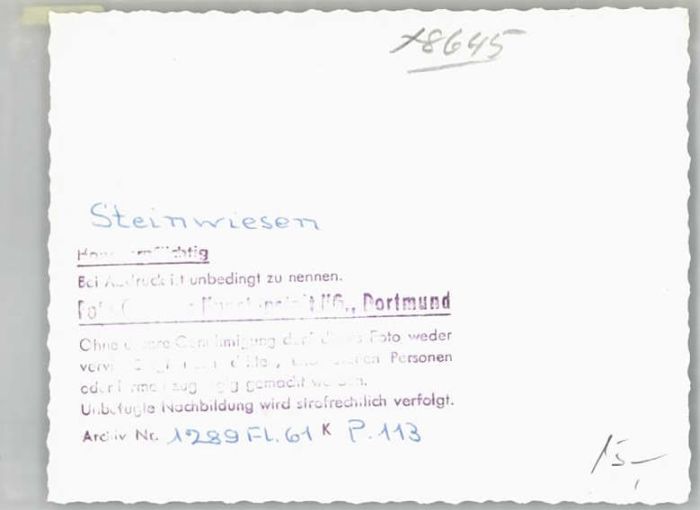 18645
Steinwiesen
Bei Abdruck ist unbedingt zu nennen.
KG., Dortmund
Ohne unsere Genehmigung darf dieses Foto weder
Personen
oder Firmen zugängig gemacht werden.
Unbefugte Nachbildung wird strafrechtlich verfolgt.
Archiv Nr. 1289 Fl. 61 K P. 113
15,-